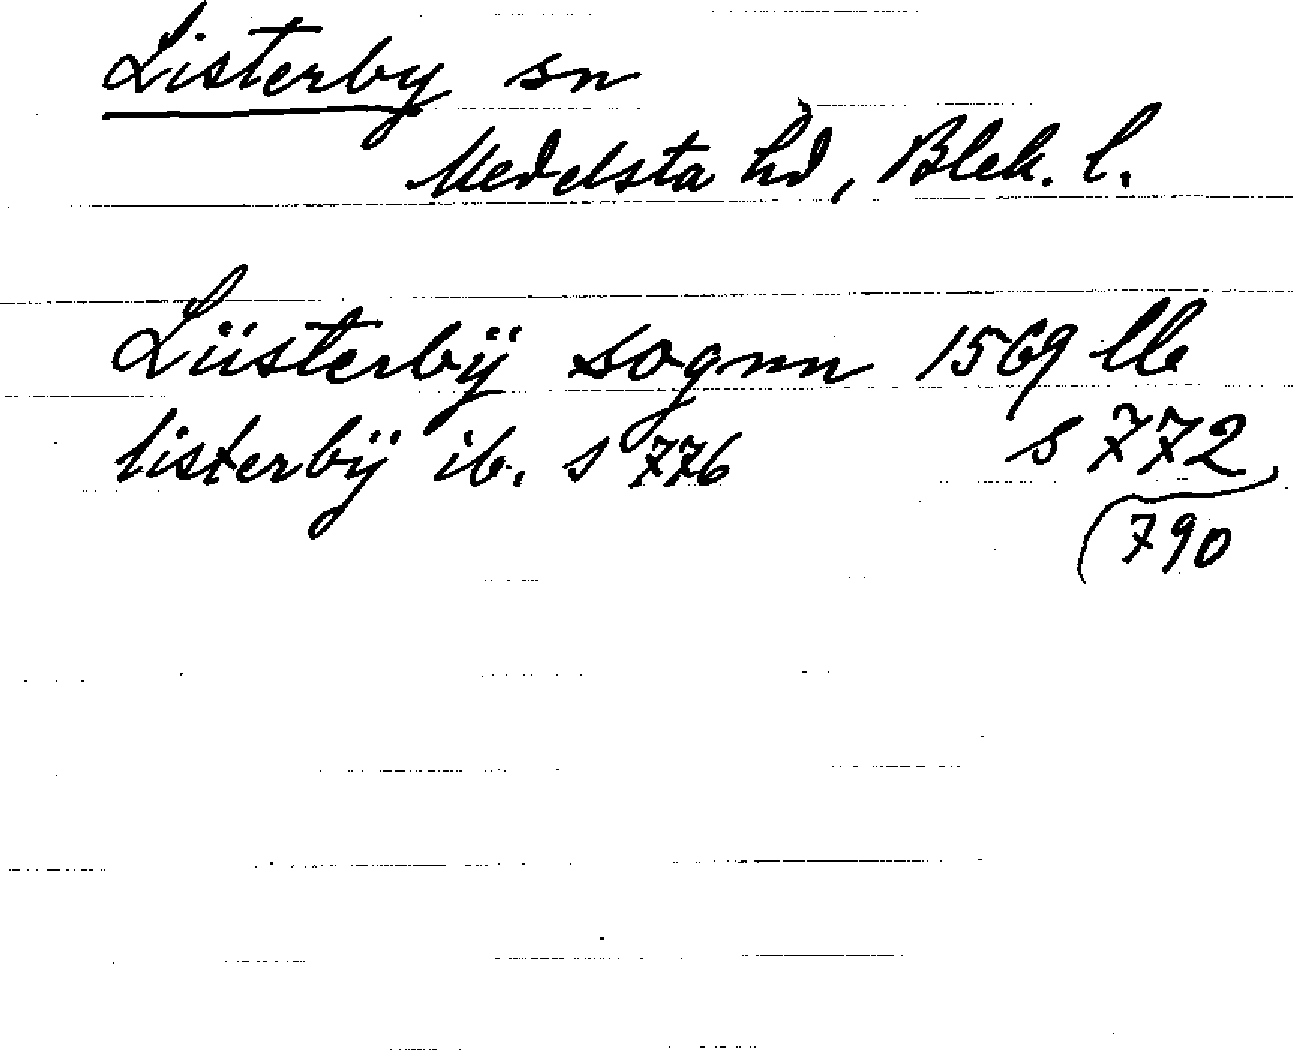 Listerby sn
Medelsta hd, Blek. l.
Liisterbÿ sognn 1569 lb
s 772
listerbÿ ib. s 776
(790